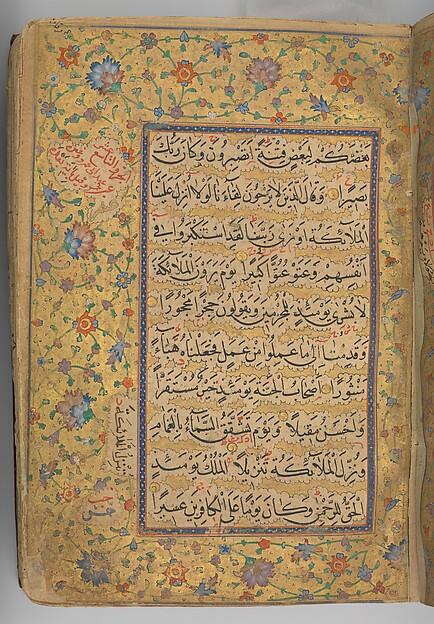 بَعْضَكُمْ لِبَعْضٍ فِتْنَةً اَتَصْبِرُونَ وَكَانَ رَبُّكَ
بَصِيرًا وَقَالَ الَّذِينَ لَا يَرْجُونَ لِقَاءَنَا لَوْلَا اُنْزِلَ عَلَيْنَا
الْمَلَائِكَةُ اَوْ نَرٰى رَبَّنَا لَقَدِ اسْتَكْبَرُوا فِي
اَنْفُسِهِمْ وَعَتَوْ عُتُوًّا كَبِيرًا يَوْمَ يَرَوْنَ الْمَلَائِكَةَ
لَا بُشْرٰى يَوْمَئِذٍ لِلْمُجْرِمِينَ وَيَقُولُونَ حِجْرًا مَحْجُورًا
وَقَدِمْنَا اِلٰى مَا عَمِلُوا مِنْ عَمَلٍ فَجَعَلْنَاهُ هَبَاءً
مَنْثُورًا اَصْحَابُ الْجَنَّةِ يَوْمَئِذٍ خَيْرٌ مُسْتَقَرًّا
وَاَحْسَنُ مَقِيلًا وَيَوْمَ تَشَقَّقُ السَّمَاءُ بِالْغَمَامِ
وَنُزِّلَ الْمَلَائِكَةُ تَنْزِيلًا الْمُلْكُ يَوْمَئِذٍ
الْحَقُّ لِلرَّحْمٰنِ وَكَانَ يَوْمًا عَلَى الْكَافِرِينَ عَسِيرًا